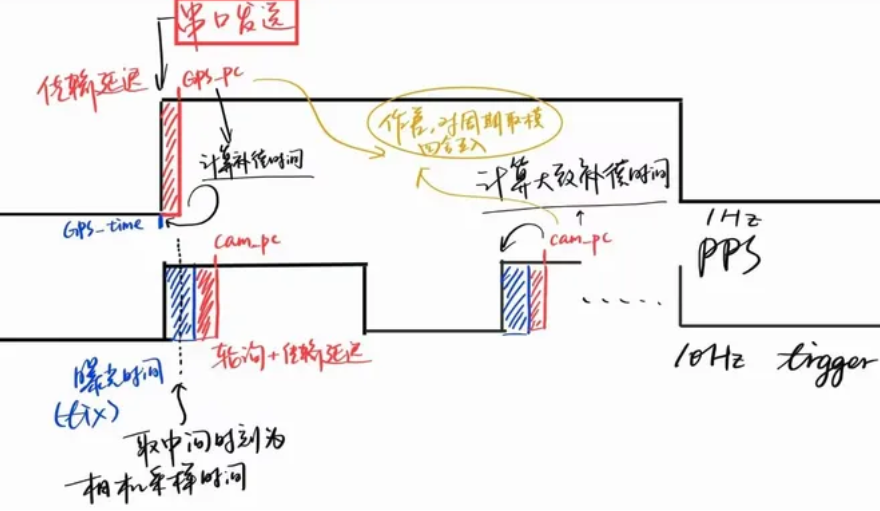 串口发送
传输延迟
GPS_pc
作差,对周期取模
四舍五入
计算补偿时间
计算大致补偿时间
GPS_time
cam_pc
cam_pc
1Hz
PPS
轮询+传输延迟
10Hz trigger
曝光时间
(fix)
取中间时刻为
相机采样时间